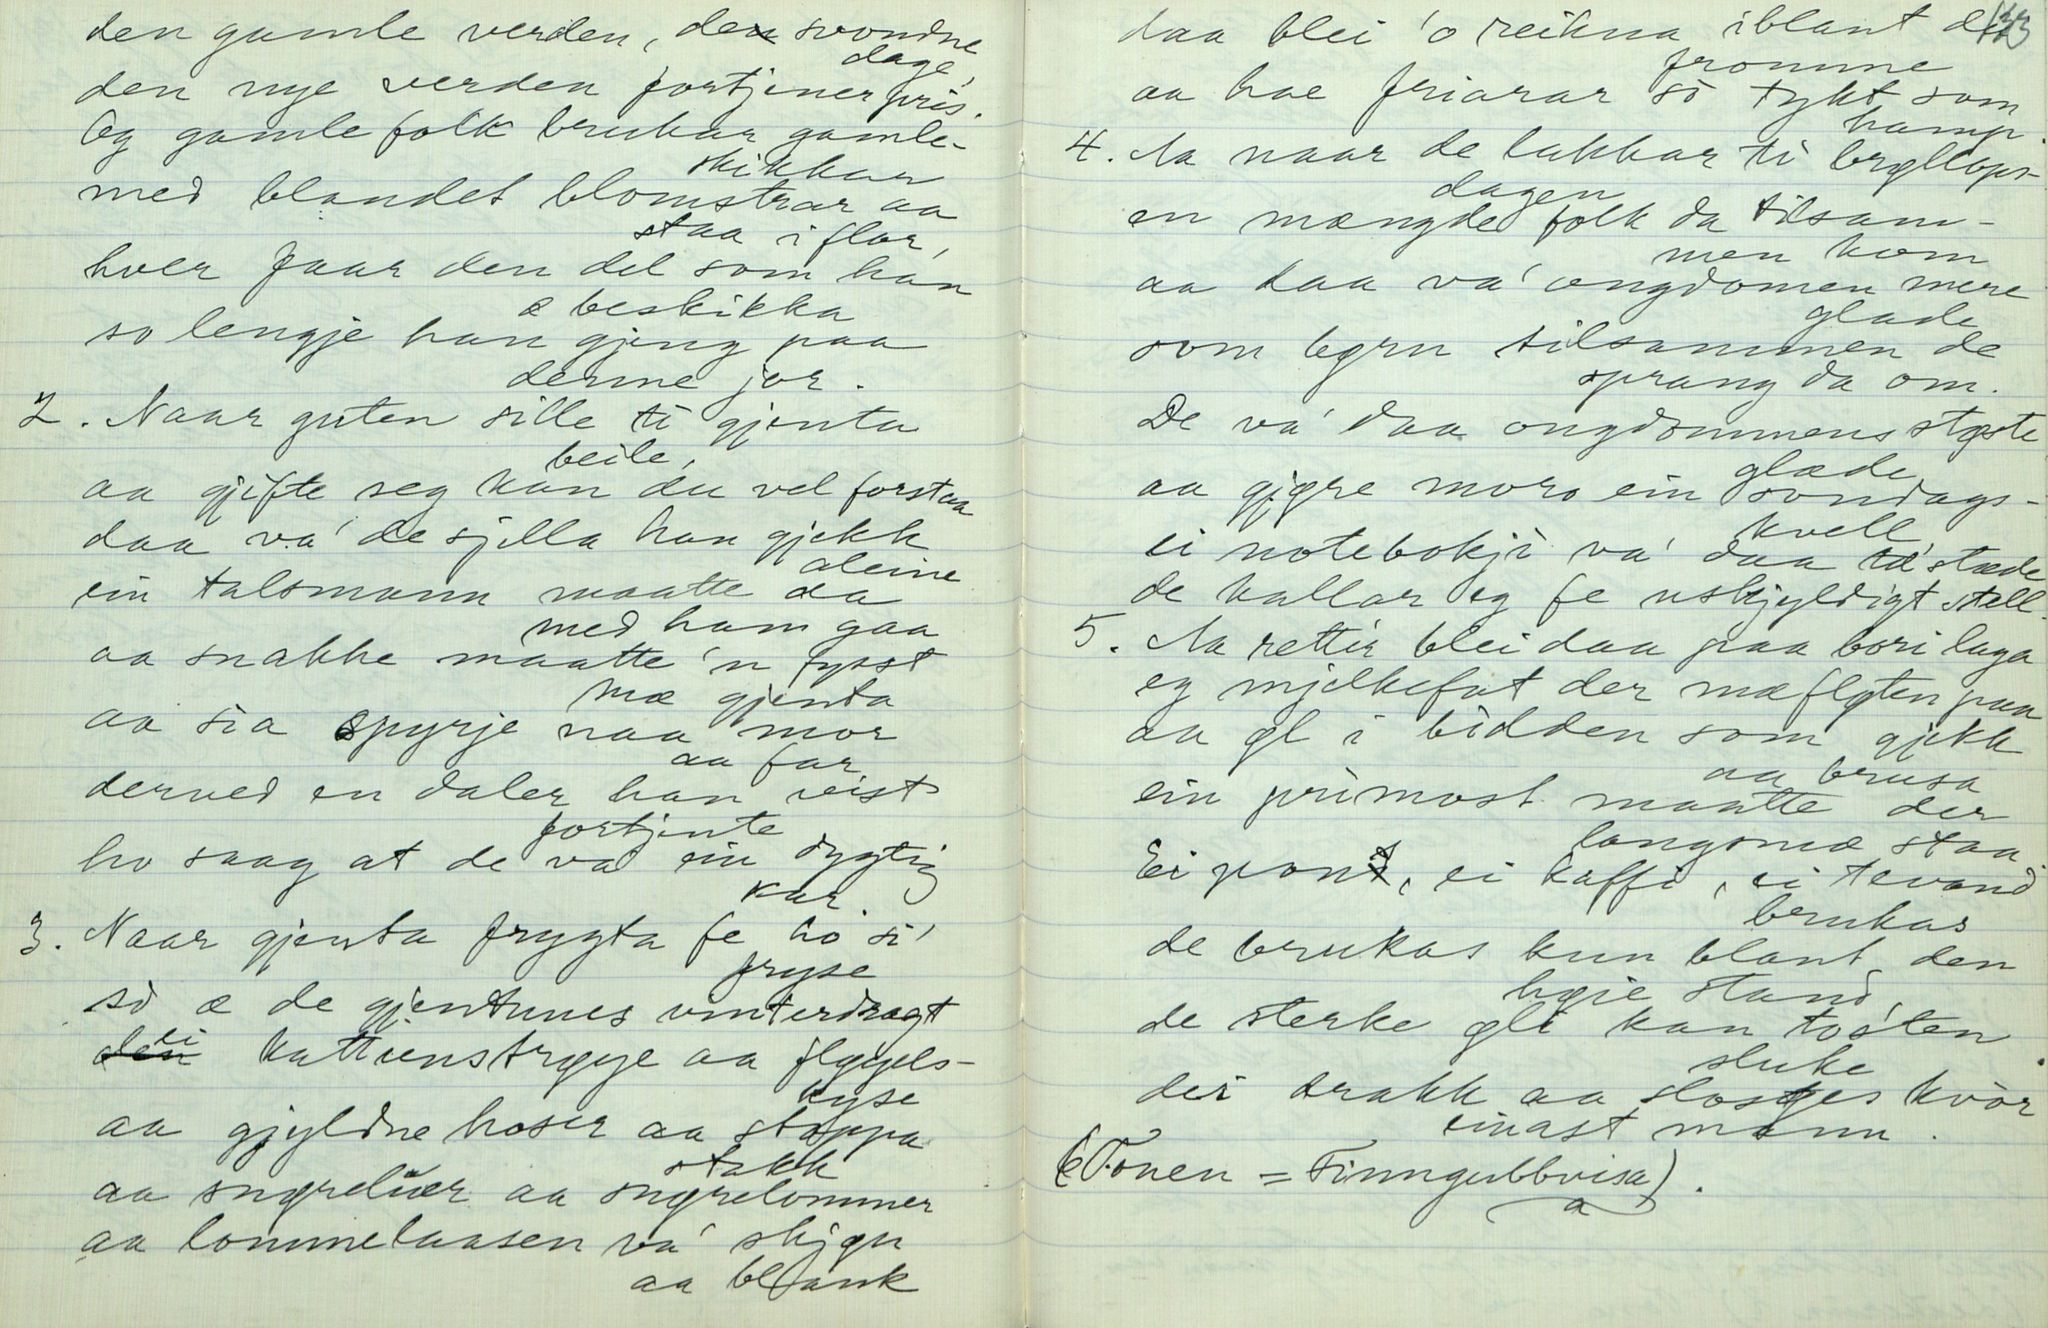 den gamle verden, den svondne
dage,
den nye verden fortjener pris.
Og gamle folk brukar gamle-
skikkar
med blandet blomstrar aa
staa i flor,
hver faar den del som han
æ beskikka
so lengje han gjeng paa
denne jor.
2. Naar guten sille ti gjenta
beile,
aa gjifte seg kan du vel forstaa
daa va' de sjilla han gjekk
aleine
ein talsmann maatte da
med ham gaa
aa snakke maatte 'n fysst
mæ gjenta
aa sia spyrje naa mor
aa far
derved en daler han visst
fortjente
ho saag at de va ein dygtig
kar.
3. Naar gjenta frygta fe ho si'
fryse
så æ de gjentunes vinterdragt
ei kattunstrøye aa fløyels-
kyse
aa gjyldne hoser aa stoppa
stakk
aa snøreliver aa snørelommer
aa lommelaasen va' skjøn
aa blank
daa blei 'o reikna iblant de
fromme
aa hae friarar så tykt som
hamp.
4. Aa naar de lakkar ti bryllops-
dagen
en mængde folk da tilsam-
men kom
aa daa va' ongdomen mere
glade
som børn tilsammen de
sprang da om.
De va' daa ongdommens støste
glæde
aa gjøre moro ein sondags-
kvell
ei notebokji va' daa tə' stæde
de kallar eg fe uskjyldigt stell.
5. Aa rettir blei daa paa bori laga
eg mjelkefat der mæ fløten paa
aa øl i bidden som gjekk
aa brusa
ein primost maatte der
langsmæ staa.
Ei pons, ei kaffi, ei tevand
brukas
de brukas kun blant den
høie stand,
de sterke øli kan tosten
sluke
dei drakk aa sloges kvor
einast mann.
(Tonen = Finngubbvisa).
a